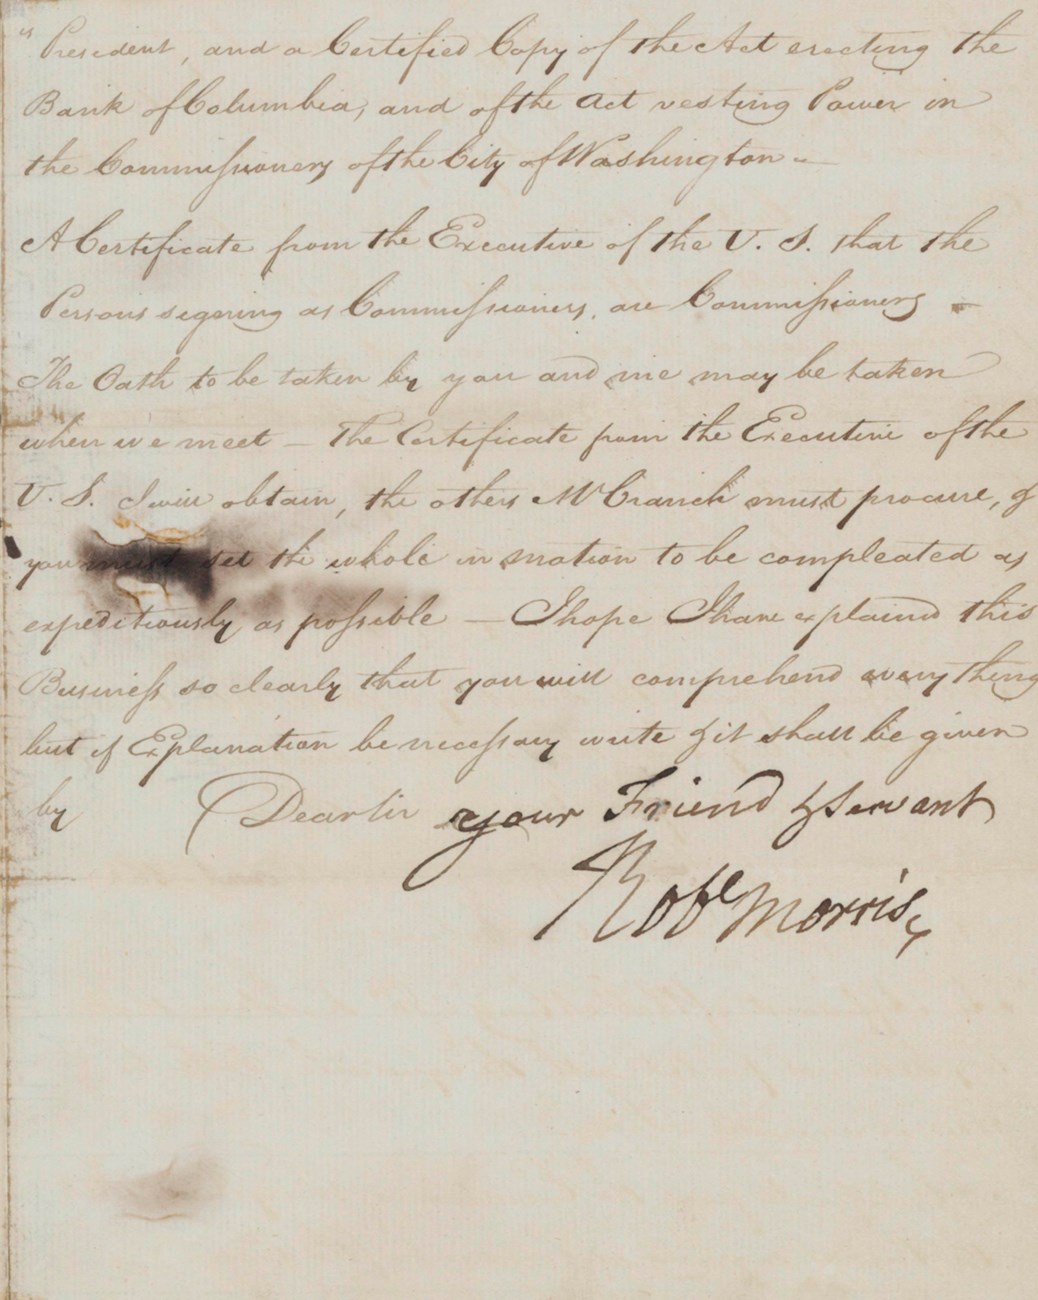 " President, and a Certified Copy of the Act erecting the
Bank of Columbia, and of the Act vesting Power in
the Commissioners of the City of Washington –
A Certificate from the Executive of the U. S. that the
Persons signing as Commissioners, are Commissioners –
The Oath to be taken by you and me may be taken
when we meet – The Certificate from the Executive of the
U. S. I will obtain, the others Mr Cranch must procure, &
you must set the whole in motion to be compleated as
expeditiously as possible – I hope I have explained this
Business so clearly that you will comprehend every thing
but if Explanation be necessary write & it shall be given
by Dear Sir your Friend & Servant
Robt Morris